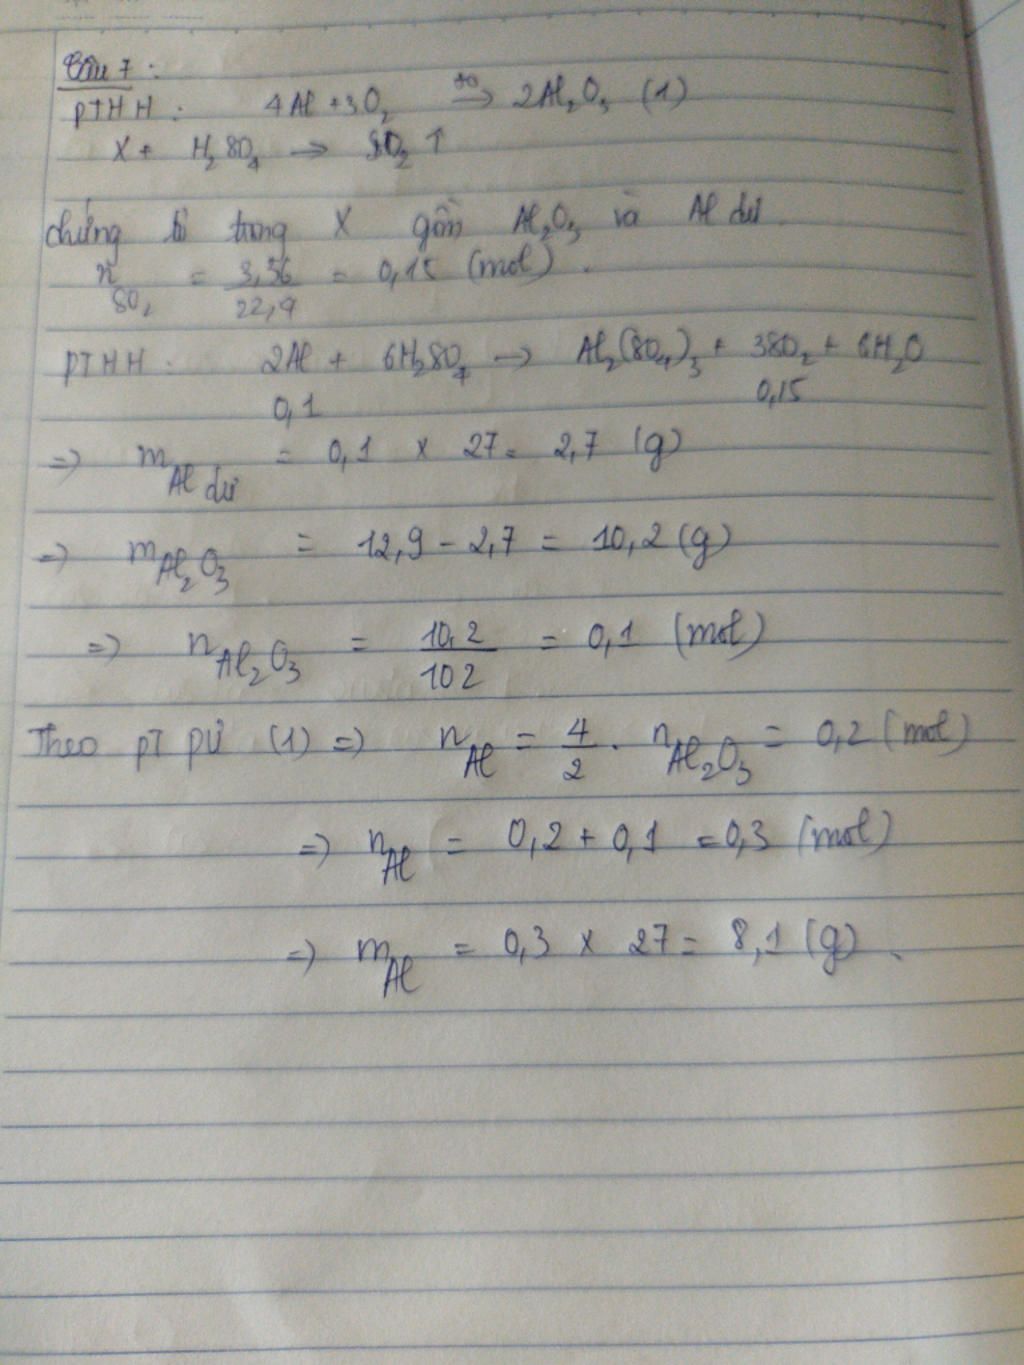 Câu 7:
PTHH: 4Al + 3O₂ t⁰→ 2Al₂O₃ (1)
X + H₂SO₄ → SO₂ ↑
chứng tỏ trong X gồm Al₂O₃ và Al dư
n SO₂ = 3,36/22,4 = 0,15 (mol).
PTHH: 2Al + 6H₂SO₄ → Al₂(SO₄)₃ + 3SO₂ + 6H₂O
0,1 0,15
=> m Al dư = 0,1 x 27 = 2,7 (g)
=> m Al₂O₃ = 12,9 - 2,7 = 10,2 (g)
=> n Al₂O₃ = 10,2/102 = 0,1 (mol)
Theo PT PƯ (1) => n Al = 4/2 . n Al₂O₃ = 0,2 (mol)
=> n Al = 0,2 + 0,1 = 0,3 (mol)
=> m Al = 0,3 x 27 = 8,1 (g).